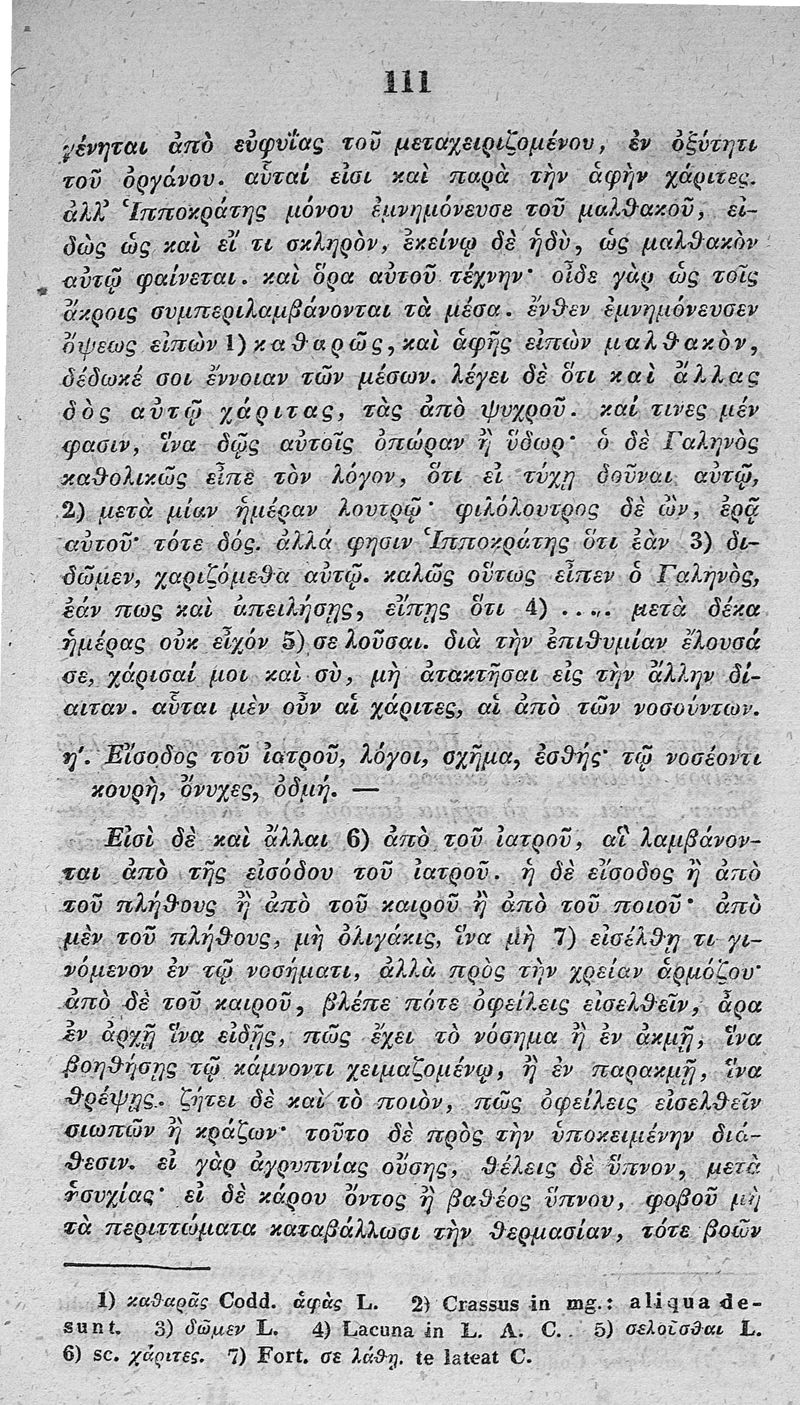 111
γένηται ἀπὸ εὐφυΐας τοῦ μεταχειριζομένου, ἐν ὀξύτητι
τοῦ ὀργάνου. αὗταί εἰσι καὶ παρὰ τὴν ἁφὴν χάριτες.
ἀλλ᾽ Ἱπποκράτης μόνου ἐμνημόνευσε τοῦ μαλθακοῦ, εἰ-
δὼς ὡς καὶ εἴ τι σκληρὸν, ἐκείνῳ δὲ ἡδὺ, ὡς μαλθακὸν
αὐτῷ φαίνεται. καὶ ὅρα αὐτοῦ τέχνην· οἶδε γὰρ ὡς τοῖς
ἄκροις συμπεριλαμβάνονται τὰ μέσα. ἔνθεν ἐμνημόνευσεν
ὄψεως εἰπὼν 1) καθαρῶς, καὶ ἁφῆς εἰπὼν μαλθακὸν,
δέδωκέ σοι ἔννοιαν τῶν μέσων. λέγει δὲ ὅτι καὶ ἄλλας
δὸς αὐτῷ χάριτας, τὰς ἀπὸ ψυχροῦ. καί τινες μέν
φασιν, ἵνα δῷς αὐτοῖς ὀπώραν ἢ ὕδωρ· ὁ δὲ Γαληνὸς
καθολικῶς εἶπε τὸν λόγον, ὅτι εἰ τύχῃ δοῦναι αὐτῷ,
2) μετὰ μίαν ἡμέραν λουτρῷ· φιλόλουτρος δὲ ὢν, ἐρᾷ
αὐτοῦ· τότε δός. ἀλλά φησιν Ἱπποκράτης ὅτι ἐὰν 3) δι-
δῶμεν, χαριζόμεθα αὐτῷ. καλῶς οὕτως εἶπεν ὁ Γαληνὸς,
ἐάν πως καὶ ἀπειλήσῃς, εἴπῃς ὅτι 4) ..... μετὰ δέκα
ἡμέρας οὐκ εἶχόν 5) σε λοῦσαι. διὰ τὴν ἐπιθυμίαν ἔλουσά
σε, χάρισαί μοι καὶ σὺ, μὴ ἀτακτῆσαι εἰς τὴν ἄλλην δί-
αιταν. αὗται μὲν οὖν αἱ χάριτες, αἱ ἀπὸ τῶν νοσούντων.
η΄. Εἴσοδος τοῦ ἰατροῦ, λόγοι, σχῆμα, ἐσθής· τῷ νοσέοντι
κουρὴ, ὄνυχες, ὀδμή. —
Εἰσὶ δὲ καὶ ἄλλαι 6) ἀπὸ τοῦ ἰατροῦ, αἳ λαμβάνον-
ται ἀπὸ τῆς εἰσόδου τοῦ ἰατροῦ. ἡ δὲ εἴσοδος ἢ ἀπὸ
τοῦ πλήθους ἢ ἀπὸ τοῦ καιροῦ ἢ ἀπὸ τοῦ ποιοῦ· ἀπὸ
μὲν τοῦ πλήθους, μὴ ὀλιγάκις, ἵνα μὴ 7) εἰσέλθῃ τι γι-
νόμενον ἐν τῷ νοσήματι, ἀλλὰ πρὸς τὴν χρείαν ἁρμόζου·
ἀπὸ δὲ τοῦ καιροῦ, βλέπε πότε ὀφείλεις εἰσελθεῖν, ἆρα
ἐν ἀρχῇ ἵνα εἰδῇς, πῶς ἔχει τὸ νόσημα ἢ ἐν ἀκμῇ, ἵνα
βοηθήσῃς τῷ κάμνοντι χειμαζομένῳ, ἢ ἐν παρακμῇ, ἵνα
θρέψῃς. ζήτει δὲ καὶ τὸ ποιὸν, πῶς ὀφείλεις εἰσελθεῖν
σιωπῶν ἢ κράζων· τοῦτο δὲ πρὸς τὴν ὑποκειμένην διά-
θεσιν. εἰ γὰρ ἀγρυπνίας οὔσης, θέλεις δὲ ὕπνον, μετὰ
ἡσυχίας· εἰ δὲ κάρου ὄντος ἢ βαθέος ὕπνου, φοβοῦ μὴ
τὰ περιττώματα καταβάλλωσι τὴν θερμασίαν, τότε βοῶν
1) καθαρᾶς Codd. ἁφὰς L. 2) Crassus in mg.: aliqua de-
sunt. 3) δῶμεν L. 4) Lacuna in L. A. C. 5) σελοῖσθαι L.
6) sc. χάριτες. 7) Fort. σε λάθῃ. te lateat C.